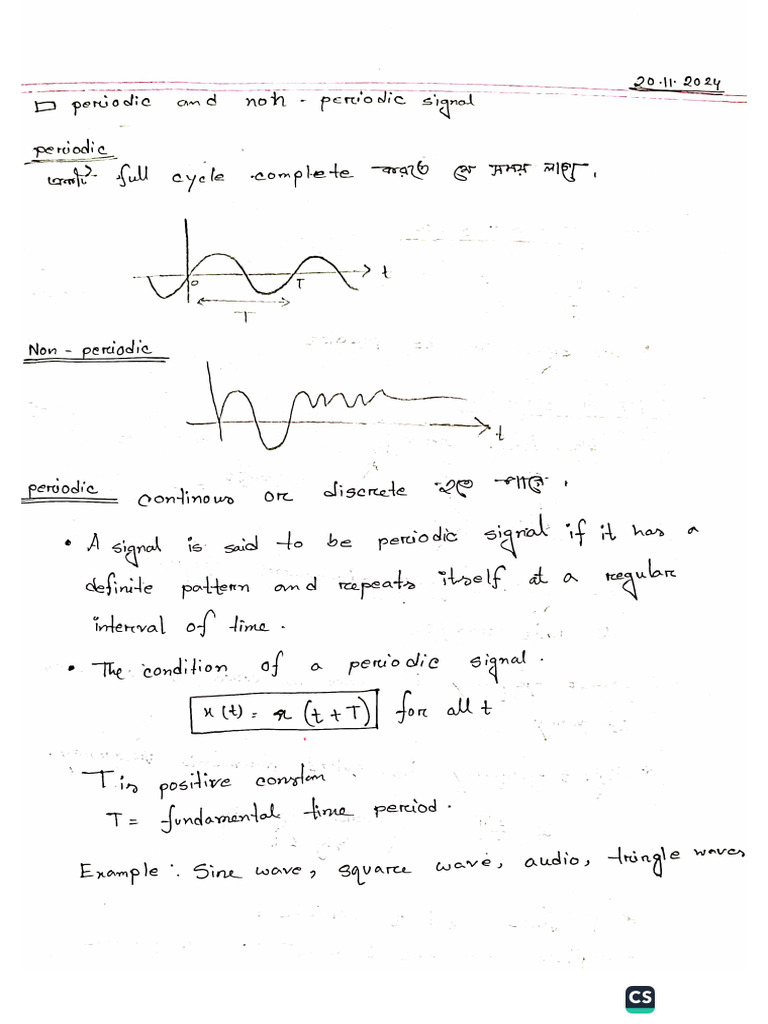 20.11.2024
periodic and non-periodic signal
periodic
একটা full cycle complete করতে যে সময় লাগে।
t
0
T
T
Non-periodic
t
periodic continous or discrete হতে পারে।
• A signal is said to be periodic signal if it has a
definite pattern and repeats itself at a regular
interval of time.
• The condition of a periodic signal.
x(t) = x(t+T) for all t
T is positive constan
T = fundamental time period.
Example: Sine wave, square wave, audio, tringle waves
CS